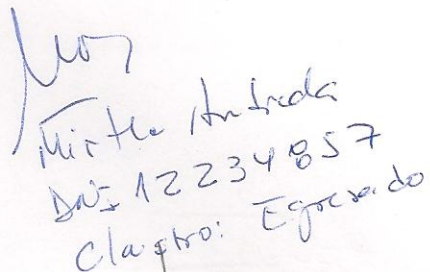 Mirtha Andrada
DNI 12234857
Claustro: Egresado